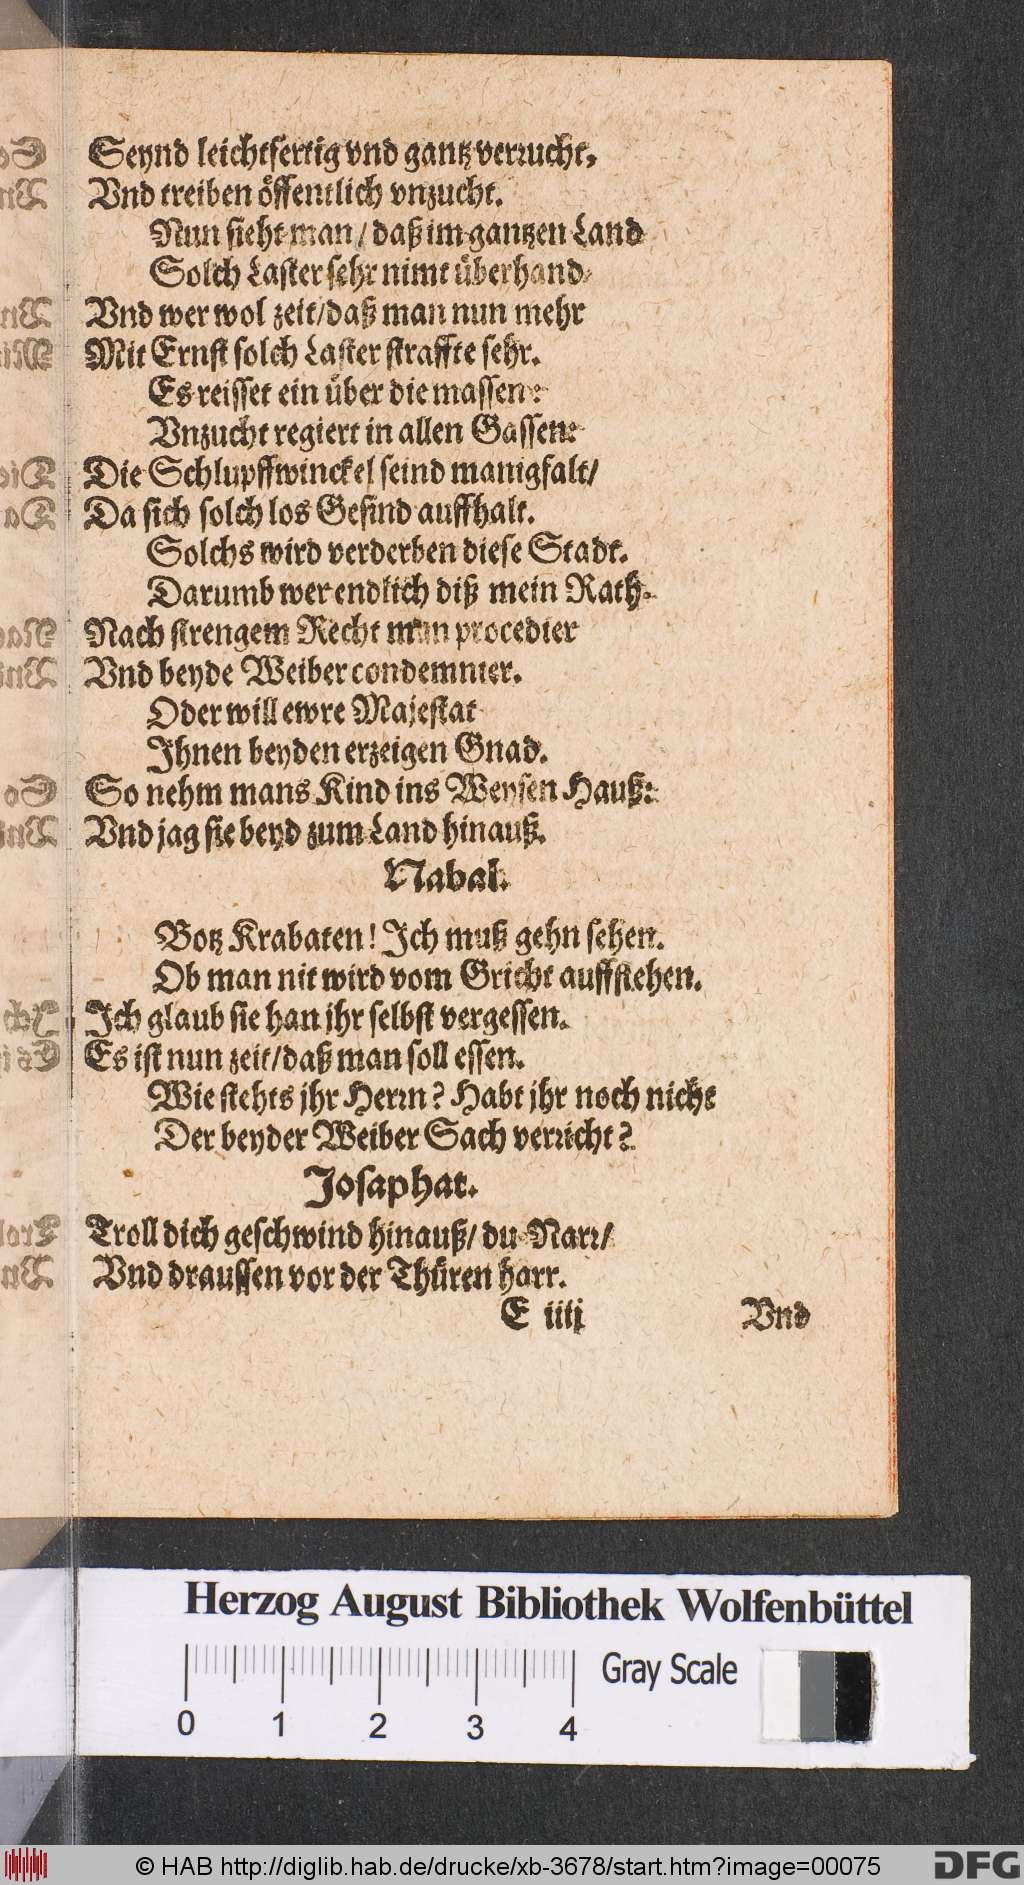 Seynd leichtfertig vnd gantz verrucht,
Vnd treiben öffentlich vnzucht.
Nun sieht man / daß im gantzen Land
Solch Laster sehr nimt überhand.
Vnd wer wol zeit/daß man nun mehr
Mit Ernst solch Laster straffte sehr.
Es reisset ein über die massen:
Vnzucht regiert in allen Gassen:
Die Schlupffwinckel seind manigfalt/
Da sich solch los Gesind auffhalt.
Solchs wird verderben diese Stadt.
Darumb wer endlich diß mein Rath.
Nach strengem Recht man procedier
Vnd beyde Weiber condemnier.
Oder will ewre Majestat
Ihnen beyden erzeigen Gnad.
So nehm mans Kind ins Weysen Hauß:
Vnd jag sie beyd zum Land hinauß.
Nabal.
Botz Krabaten! Ich muß gehn sehen.
Ob man nit wird vom Gricht auffstehen.
Ich glaub sie han jhr selbst vergessen.
Es ist nun zeit/daß man soll essen.
Wie stehts jhr Herrn? Habt jhr noch nicht
Der beyder Weiber Sach verricht?
Josaphat.
Troll dich geschwind hinauß/ du Narr/
Vnd draussen vor der Thüren harr.
E iiij Vnd
Herzog August Bibliothek Wolfenbüttel
Gray Scale
0 1 2 3 4
© HAB http://diglib.hab.de/drucke/xb-3678/start.htm?image=00075
DFG